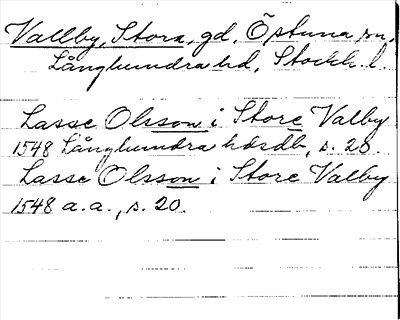 Vallby, Stora, gd, Östuna sn,
Långhundra hd, Stockh. l.
Lasse Olsson i Store Valby
1548 Långhundra hdsdb, s. 20.
Lasse Olsson i Store Valby
1548 a.a., s. 20.